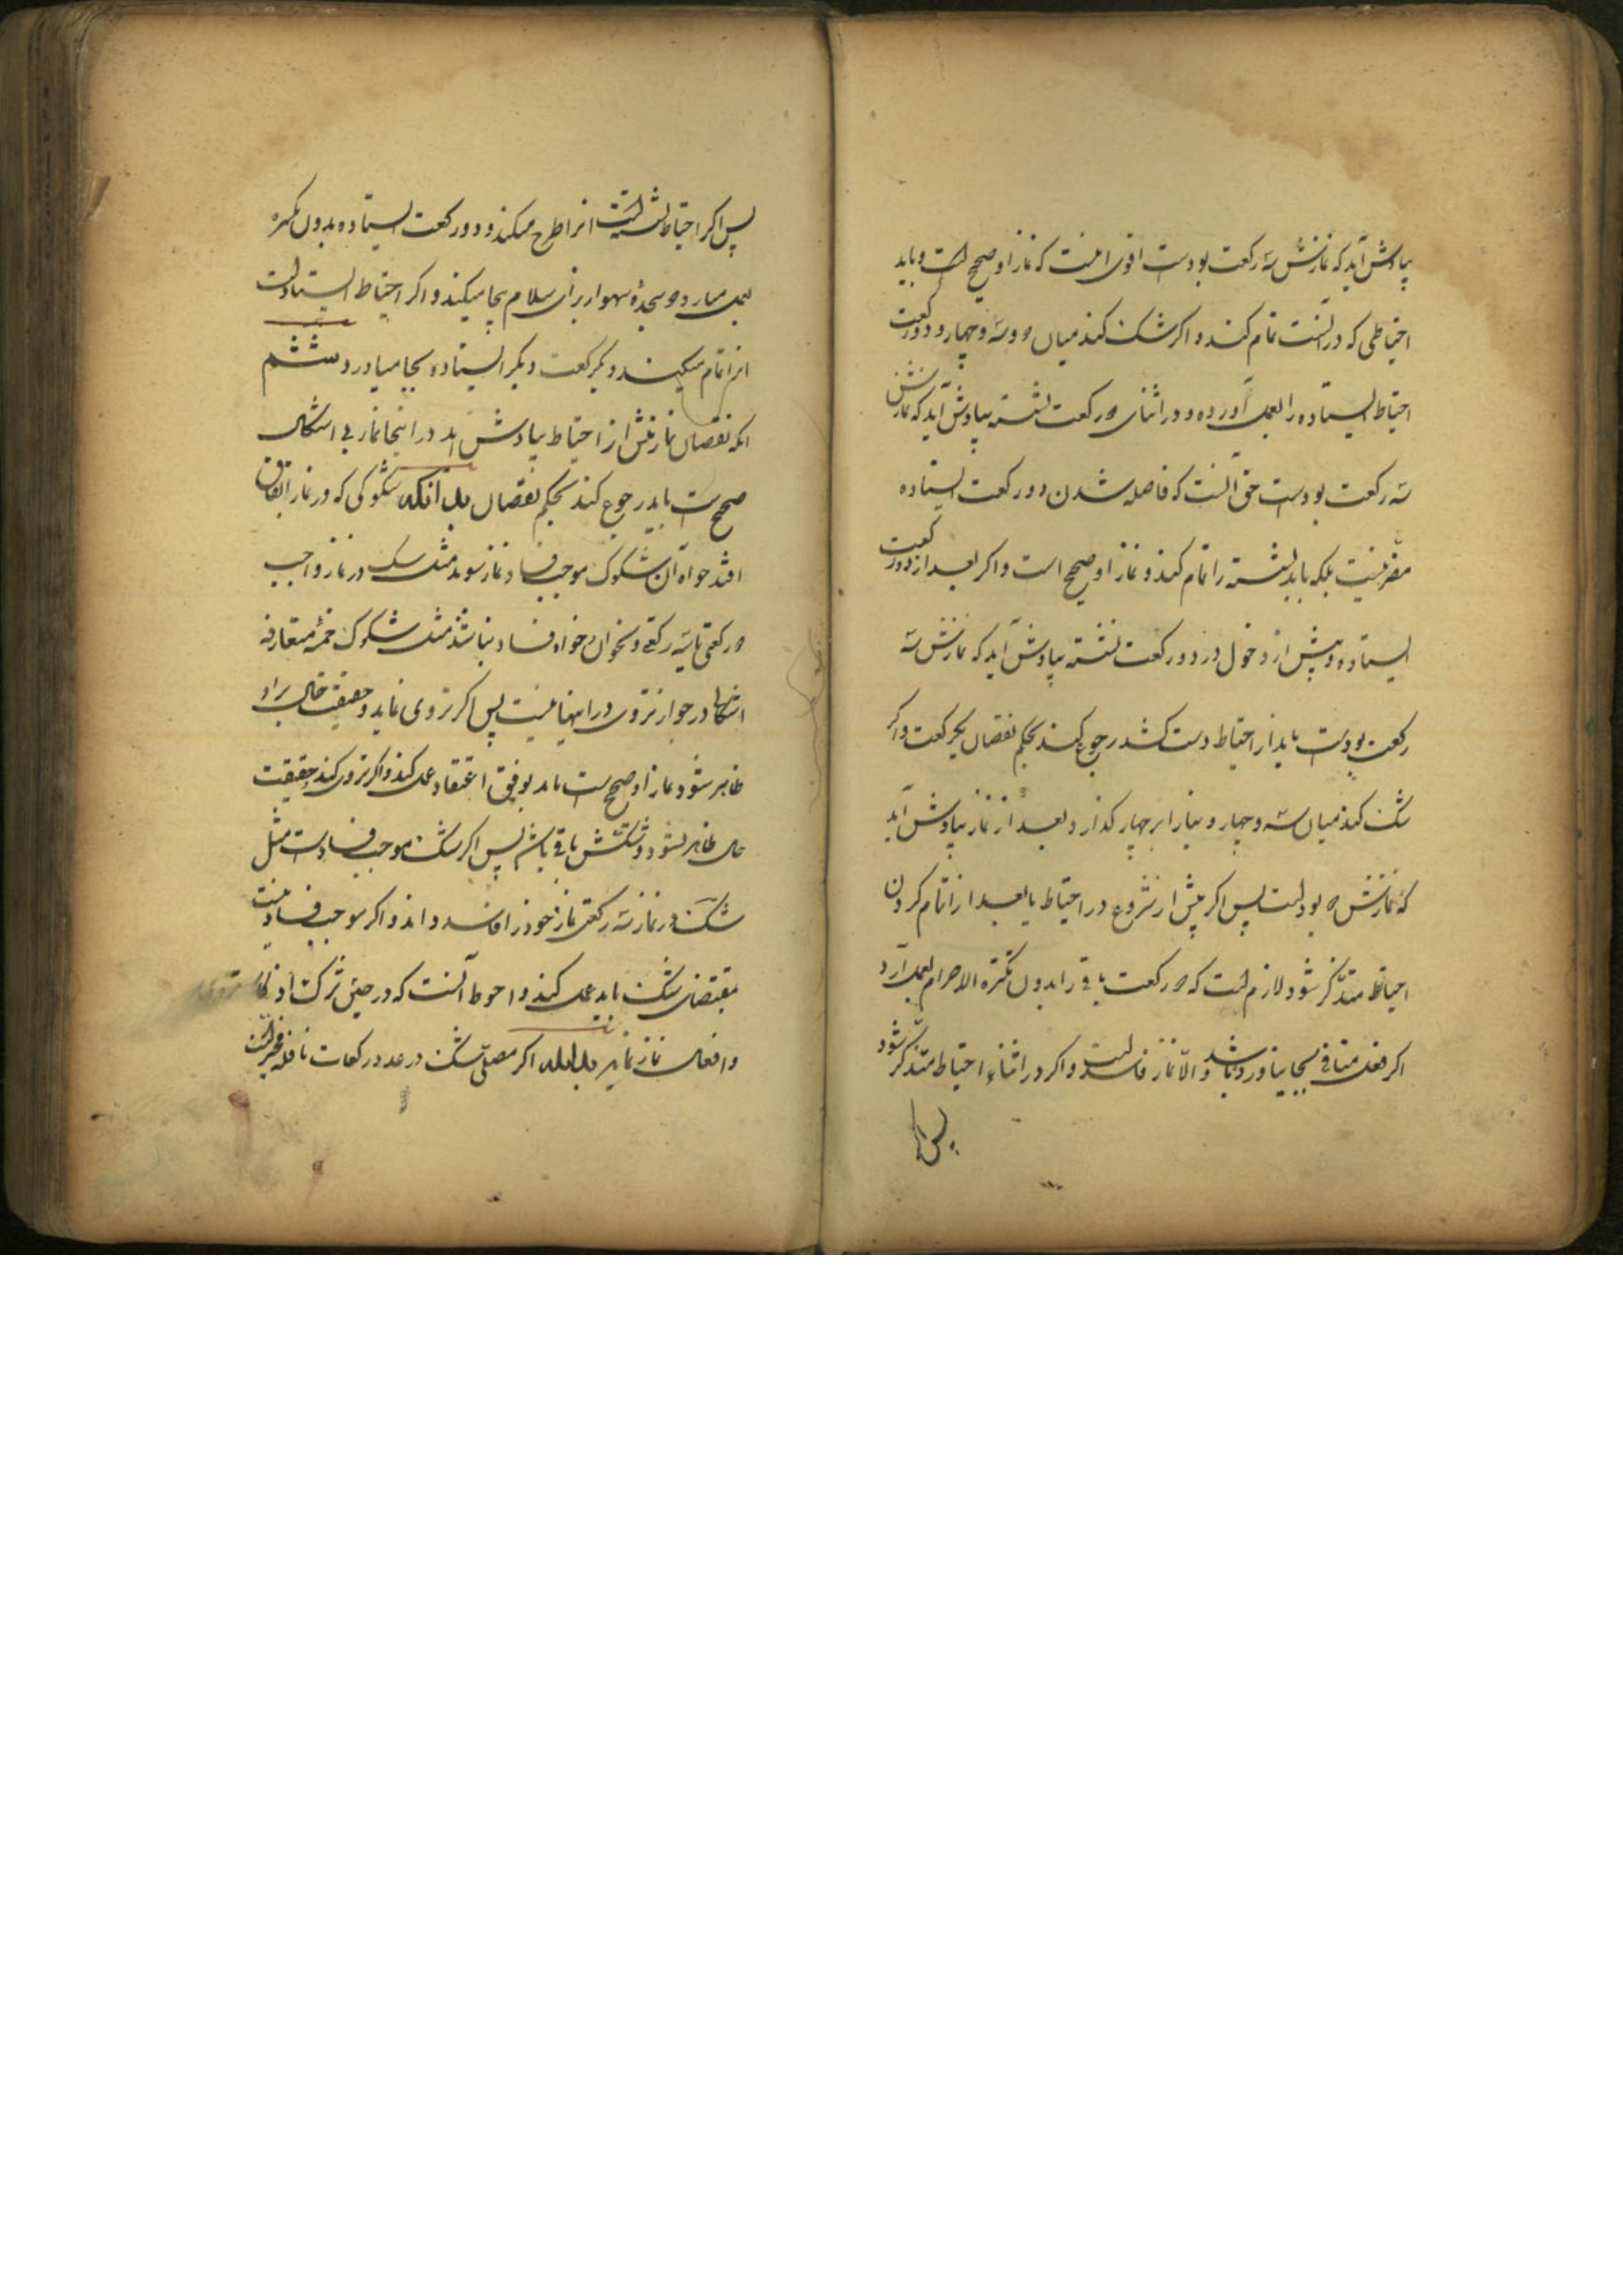 بیادش آید که نمازش سه رکعت بوده است اقوی اینست که نماز او صحیح است و باید
احتیاطی که در آنست تمام کند و اگر شک کند میان ۲ و سه و چهار و دو رکعت
احتیاط ایستاده را بعمل آورده و در اثنای ۲ رکعت نشسته بیادش آید که نمازش
سه رکعت بوده است حق آنست که فاصله شدن دو رکعت ایستاده
مضر نیست بلکه باید نشسته را تمام کند و نماز او صحیح است و اگر بعد از دو رکعت
ایستاده و پیش از دخول در دو رکعت نشسته بیادش آید که نمازش سه
رکعت بوده است باید از احتیاط دست کشد رجوع کند بحکم نقصان یکرکعت و اگر
شک کند میان سه و چهار و بنا را بر چهار گذارد و بعد از نماز بیادش آید
که نمازش ۲ بوده است پس اگر پیش از شروع در احتیاط یا بعد از اتمام کردن
احتیاط متذکر شود لازم است که ۲ رکعت باقی را بدون تکبیرة الاحرام بعمل آرد
اگر فعل منافی بجا نیاورده باشد و الا نماز فاسد است و اگر در اثناء احتیاط متذکر شود
پس اگر
پس اگر احتیاط نشسته است انرا طرح میکند و دو رکعت ایستاده بدون تکبیره
بعمل میارد و ۲ سجده سهو از برای سلام بجا میکند و اگر احتیاط ایستاده است
انرا تمام میکند و یکرکعت دیگر ایستاده بجا میاورد ششم
انکه نقصان نماز پیش از احتیاط بیادش اید در اینجا نماز بی اشکال
صحیح است باید رجوع کند بحکم نقصان بدانکه شکوکی که در نماز اتفاق
افتد خواه آن شکوک موجب فساد نماز شوند مثل شک در نماز واجب
۲ رکعتی یا سه رکعتی و نحو ان و خواه فساد نباشد مثل شکوک خمسه متعارفه
اشکالی در جواز تروی در اینها نیست پس اگر تروی نماید و حقیقت حال بر او
ظاهر شود نماز او صحیح است باید بوفق اعتقاد عمل کند و اگر تروی کند و حقیقت
حال ظاهر نشود و شکش باقی باشد پس اگر شک موجب فساد است مثل
شک در نماز سه رکعتی نماز خود را فاسد داند و اگر موجب فساد نیست
بمقتضای شک باید عمل کند و احوط آنست که در حین تروی ترک
و افعال نماز نماید بدانکه اگر مصلی شک در عدد رکعات نافله مخیر است